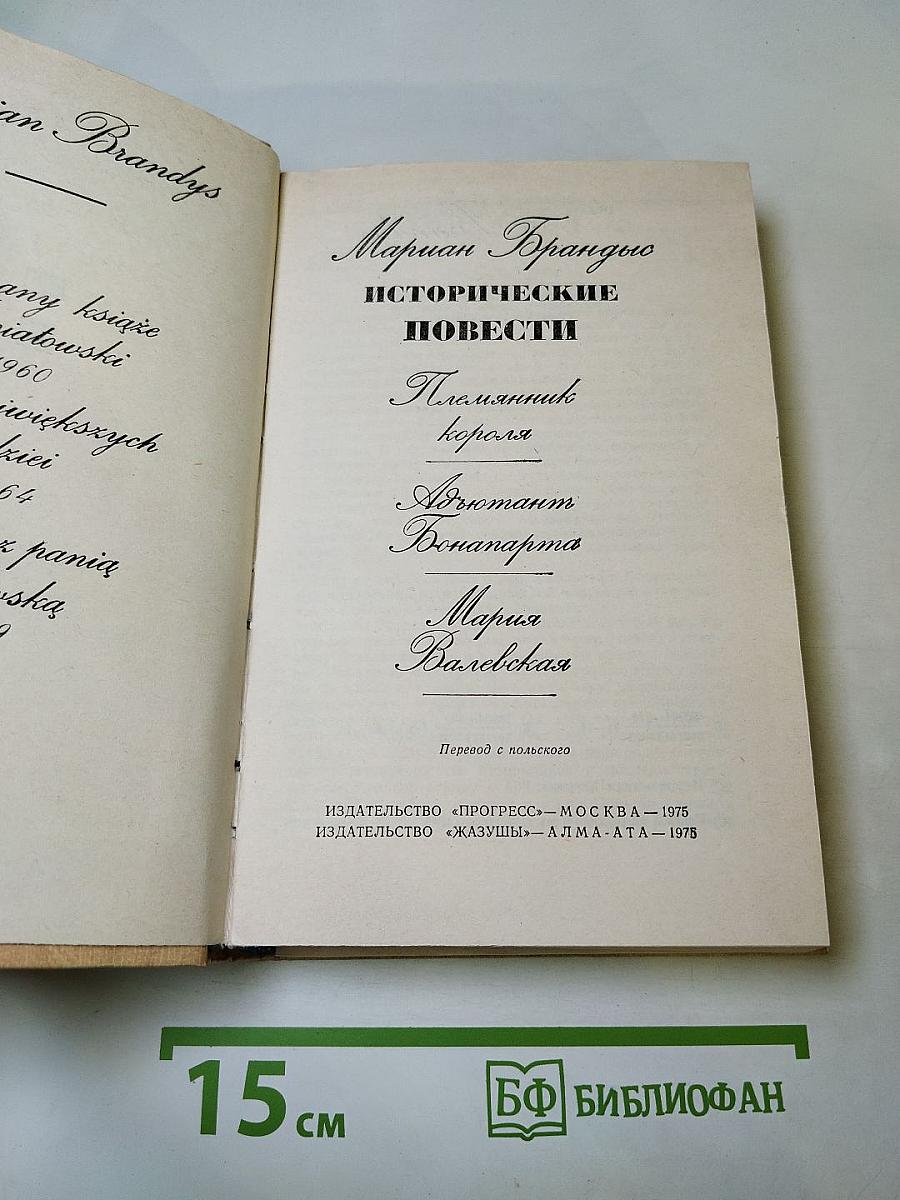 Brandys
książe
1960
64
z panią
Мариан Брандыс
ИСТОРИЧЕСКИЕ
ПОВЕСТИ
Племянник
короля
Адъютант
Бонапарта
Мария
Валевская
Перевод с польского
ИЗДАТЕЛЬСТВО «ПРОГРЕСС»—МОСКВА—1975
ИЗДАТЕЛЬСТВО «ЖАЗУШЫ»—АЛМА-АТА—1975
15 см
БФ БИБЛИОФАН